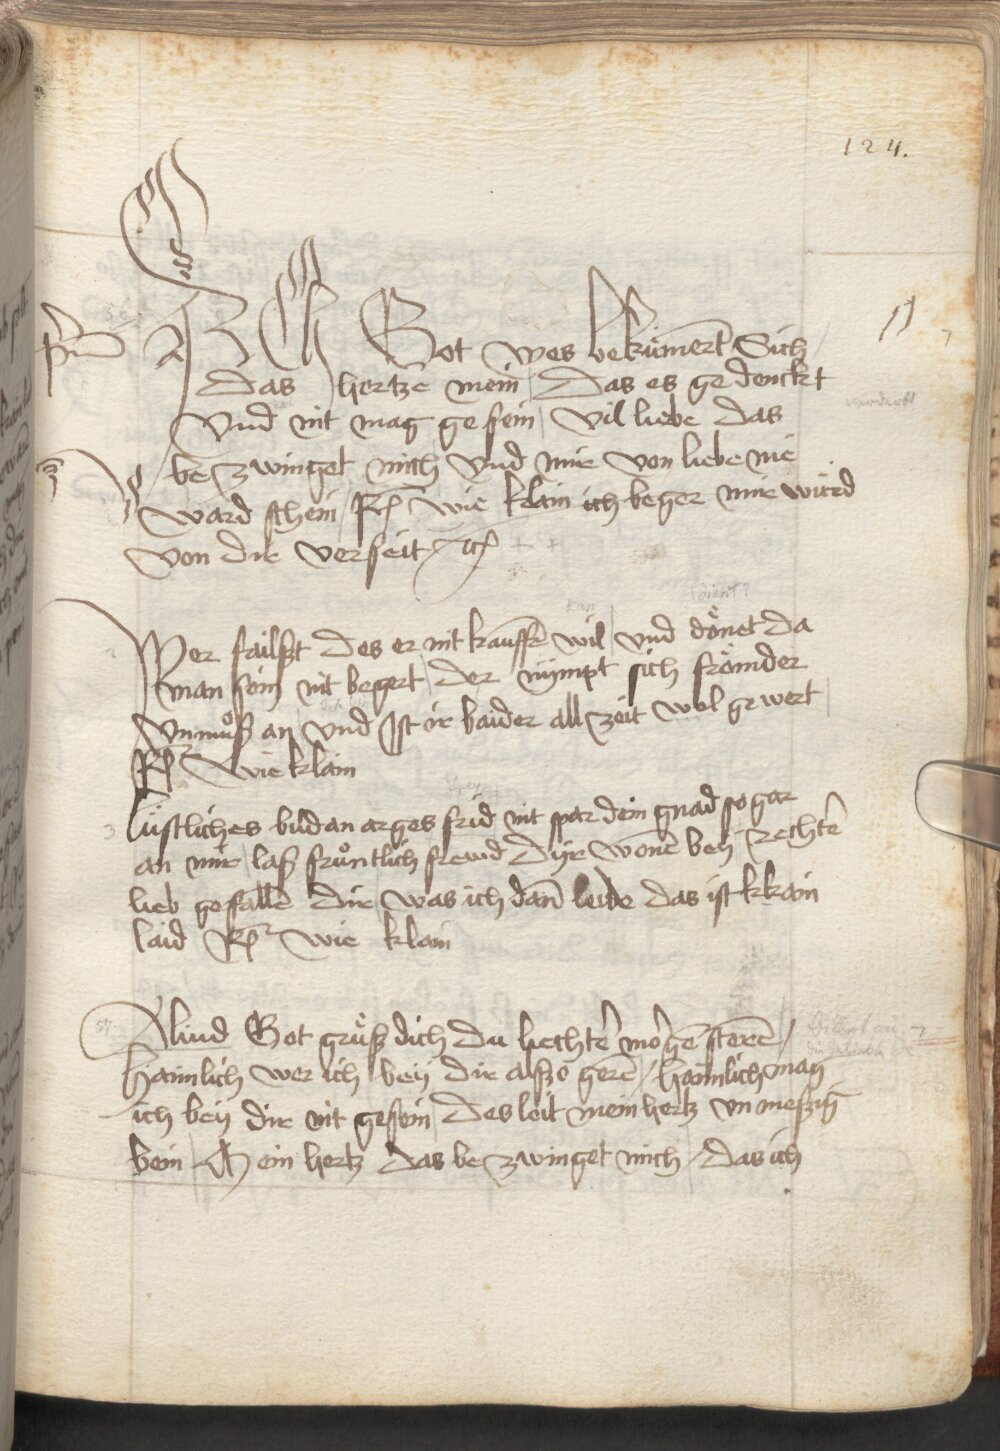 124.
ACh Got wes bekümert Sich
das hertze mein / Das es gedenckt
Vnd nit mag gesein / Vil liebe das
bezwinget mich Vnd mir von liebe nie
ward schein / Rͭ wie klain ich beger mir würd
von dir verseit
Wer failszt des er nit kauffē wil / vnd dönet da
man sein nit begert / der nympt sich frömder
vnmůsz an / vnd Ist ir baider all zeit wol gewert /
Rͭ Wie klain
3
lüstliches bild an arges frid nit spar dein gnad so gar
an mir / lasz frůntlich frewd Dyr wonē bey / rechtē
lieb gefallē dir / was ich dañ leide das ist kkain
laid Rͭ wie klain
57
Aliud Got grüsz dich du liechtē mo'gē sterē /
Haimlich wer ich bey dir alszo gerē / haimlich mag
ich bey dir nit gesein / des leit mein hertz vnmeszig
bein / Mein hertz das bezwinget mich / das ich